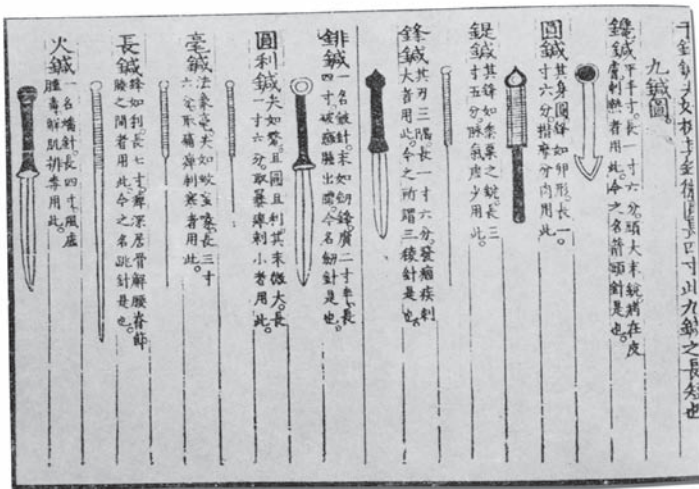 于鋒鍼尖如挺其鋒微員長四寸此九鍼之長短也
九鍼圖
鑱鍼 平半寸。長一寸六分。頭大末銳。病在皮
膚。刺熱者用此。今之名箭頭針是也。
圓鍼 其身圓。鋒如卵形。長一
寸六分。揩摩分肉用此
鍉鍼 其鋒如黍粟之銳。長三
寸五分。脉氣虛少用此。
鋒鍼 其刃三隅。長一寸六分。發痼疾刺
大者用此。今之所謂三稜針是也。
錍鍼 一名鈹針。末如劒鋒。廣二寸半。長
四寸。破癰腫出膿。今名劒針是也。
圓利鍼 尖如氂。且圓且利。其末微大。長
一寸六分。取暴痺刺小者用此。
毫鍼 法象毫。尖如蚊虻喙。長三寸
六分。取痛痺刺寒者用此。
長鍼 鋒如利。長七寸。痺深居骨解腰脊節
腠之間者用此。今之名跳針是也。
火鍼 一名燔針。長四寸。風虛
腫毒解肌排毒用此。